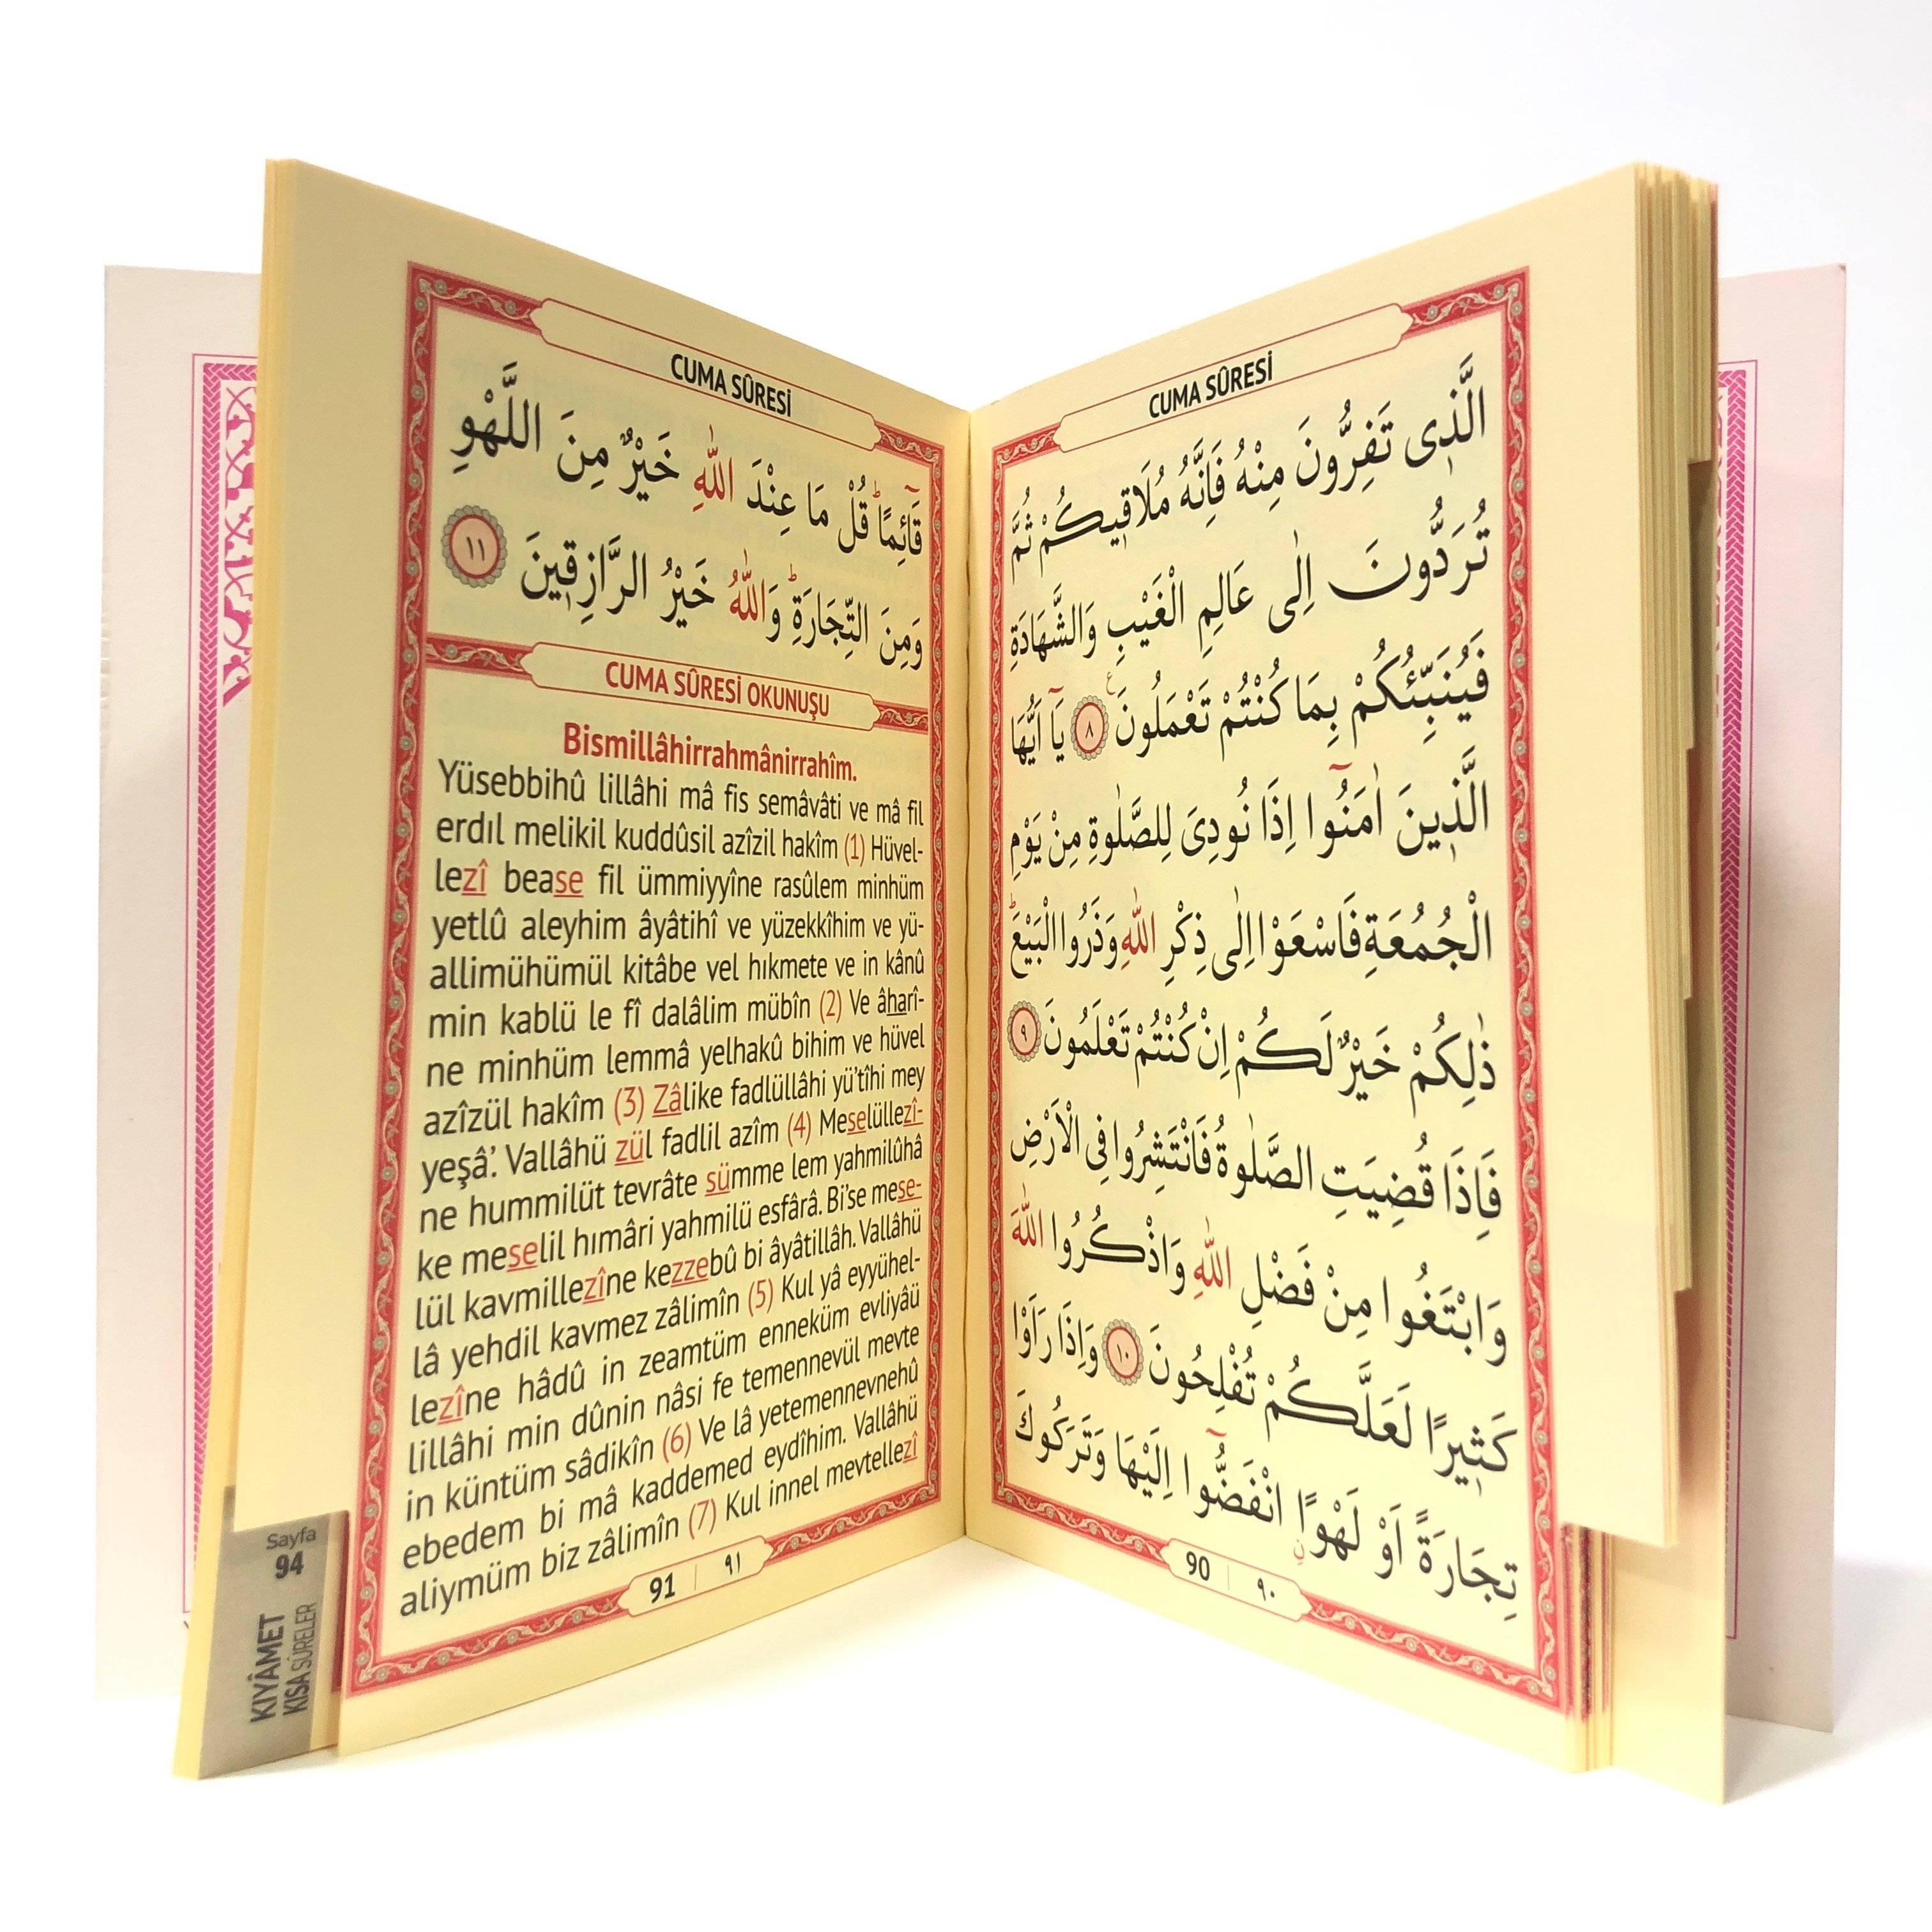 CUMA SÛRESİ
الَّذٖى تَفِرُّونَ مِنْهُ فَاِنَّهُ مُلَاقٖيكُمْ ثُمَّ
تُرَدُّونَ اِلٰى عَالِمِ الْغَيْبِ وَالشَّهَادَةِ
فَيُنَبِّئُكُمْ بِمَا كُنْتُمْ تَعْمَلُونَ ﴿٨﴾ يَٓا اَيُّهَا
الَّذٖينَ اٰمَنُٓوا اِذَا نُودِىَ لِلصَّلٰوةِ مِنْ يَوْمِ
الْجُمُعَةِ فَاسْعَوْا اِلٰى ذِكْرِ اللّٰهِ وَذَرُوا الْبَيْعَ ط
ذٰلِكُمْ خَيْرٌ لَكُمْ اِنْ كُنْتُمْ تَعْلَمُونَ ﴿٩﴾
فَاِذَا قُضِيَتِ الصَّلٰوةُ فَانْتَشِرُوا فِى الْاَرْضِ
وَابْتَغُوا مِنْ فَضْلِ اللّٰهِ وَاذْكُرُوا اللّٰهَ
كَثٖيرًا لَعَلَّكُمْ تُفْلِحُونَ ﴿١٠﴾ وَاِذَا رَاَوْا
تِجَارَةً اَوْ لَهْوًاۨ انْفَضُّٓوا اِلَيْهَا وَتَرَكُوكَ
90 ٩٠
CUMA SÛRESİ
قَٓائِمًا ط قُلْ مَا عِنْدَ اللّٰهِ خَيْرٌ مِنَ اللَّهْوِ
وَمِنَ التِّجَارَةِ ط وَاللّٰهُ خَيْرُ الرَّازِقٖينَ ﴿١١﴾
CUMA SÛRESİ OKUNUŞU
Bismillâhirrahmânirrahîm.
Yüsebbihû lillâhi mâ fis semâvâti ve mâ fil
erdıl melikil kuddûsil azîzil hakîm (1) Hüvel-
lezî bease fil ümmiyyîne rasûlem minhüm
yetlû aleyhim âyâtihî ve yüzekkîhim ve yü-
allimühümül kitâbe vel hıkmete ve in kânû
min kablü le fî dalâlim mübîn (2) Ve âharî-
ne minhüm lemmâ yelhakû bihim ve hüvel
azîzül hakîm (3) Zâlike fadlüllâhi yü'tîhi mey
yeşâ'. Vallâhü zül fadlil azîm (4) Meselüllezî-
ne hummilüt tevrâte sümme lem yahmilûhâ
ke meselil hımâri yahmilü esfârâ. Bi'se mese-
lül kavmillezîne kezzebû bi âyâtillâh. Vallâhü
lâ yehdil kavmez zâlimîn (5) Kul yâ eyyühel-
lezîne hâdû in zeamtüm enneküm evliyâü
lillâhi min dûnin nâsi fe temennevül mevte
in küntüm sâdikîn (6) Ve lâ yetemennevnehû
ebedem bi mâ kaddemed eydîhim. Vallâhü
aliymüm biz zâlimîn (7) Kul innel mevtellezî
91 ٩١
Sayfa
94
KIYÂMET
KISA SÛRELER